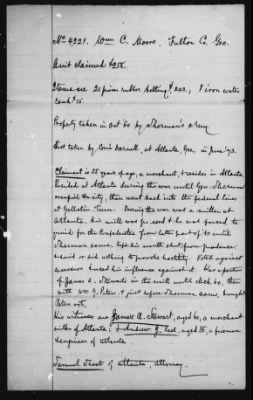 No. 4221. Wm C. Moore. Fulton Co. Geo.
Amt claimed $258.
Items are 21 pieces rubber belting $243., 1 iron water
tank $15.
Property taken in Oct 64 by Sherman's army.
Test. taken by Com'r Darnell, at Atlanta, Geo. in June '73.
Claimant is 55 years of age, a merchant, & resides in Atlanta.
Resided at Atlanta during the war until Gen Sherman
occupied the city, then went back into the federal lines
at Gallatin Tenn. During the war was a miller at
Atlanta. his mill was for rent & he was forced to
grind for the Confederates from latter part of '63 until
Sherman came. Kept his mouth shut from prudence
said or did nothing to provoke hostility. Voted against
secession & used his influence against it. Was a partner
of James A. Stewart in the mill until
with Wm G. Peters & just before Sherman came, bought
Peters out.
His witnesses are James A. Stewart, aged 60, a merchant
miller of Atlanta; & Andrew J. aged 35, a
of Atlanta.
Samuel of Atlanta, attorney.